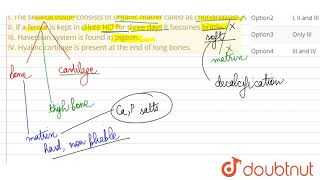 I. The skeletal tissue consists of organic matter called as chondroblast.
II. If a femur is kept in dilute HCl for three days it becomes brittle.
III. Haversian system is found in pigeon.
IV. Hyaline cartilage is present at the end of long bones.
Option2 I, II and III
Option3 Only III
Option4 III and IV
soft
matrix
decalcification
bone
cartilage
thigh bone
Ca, P salts
matrix
hard, non pliable
doubtnut